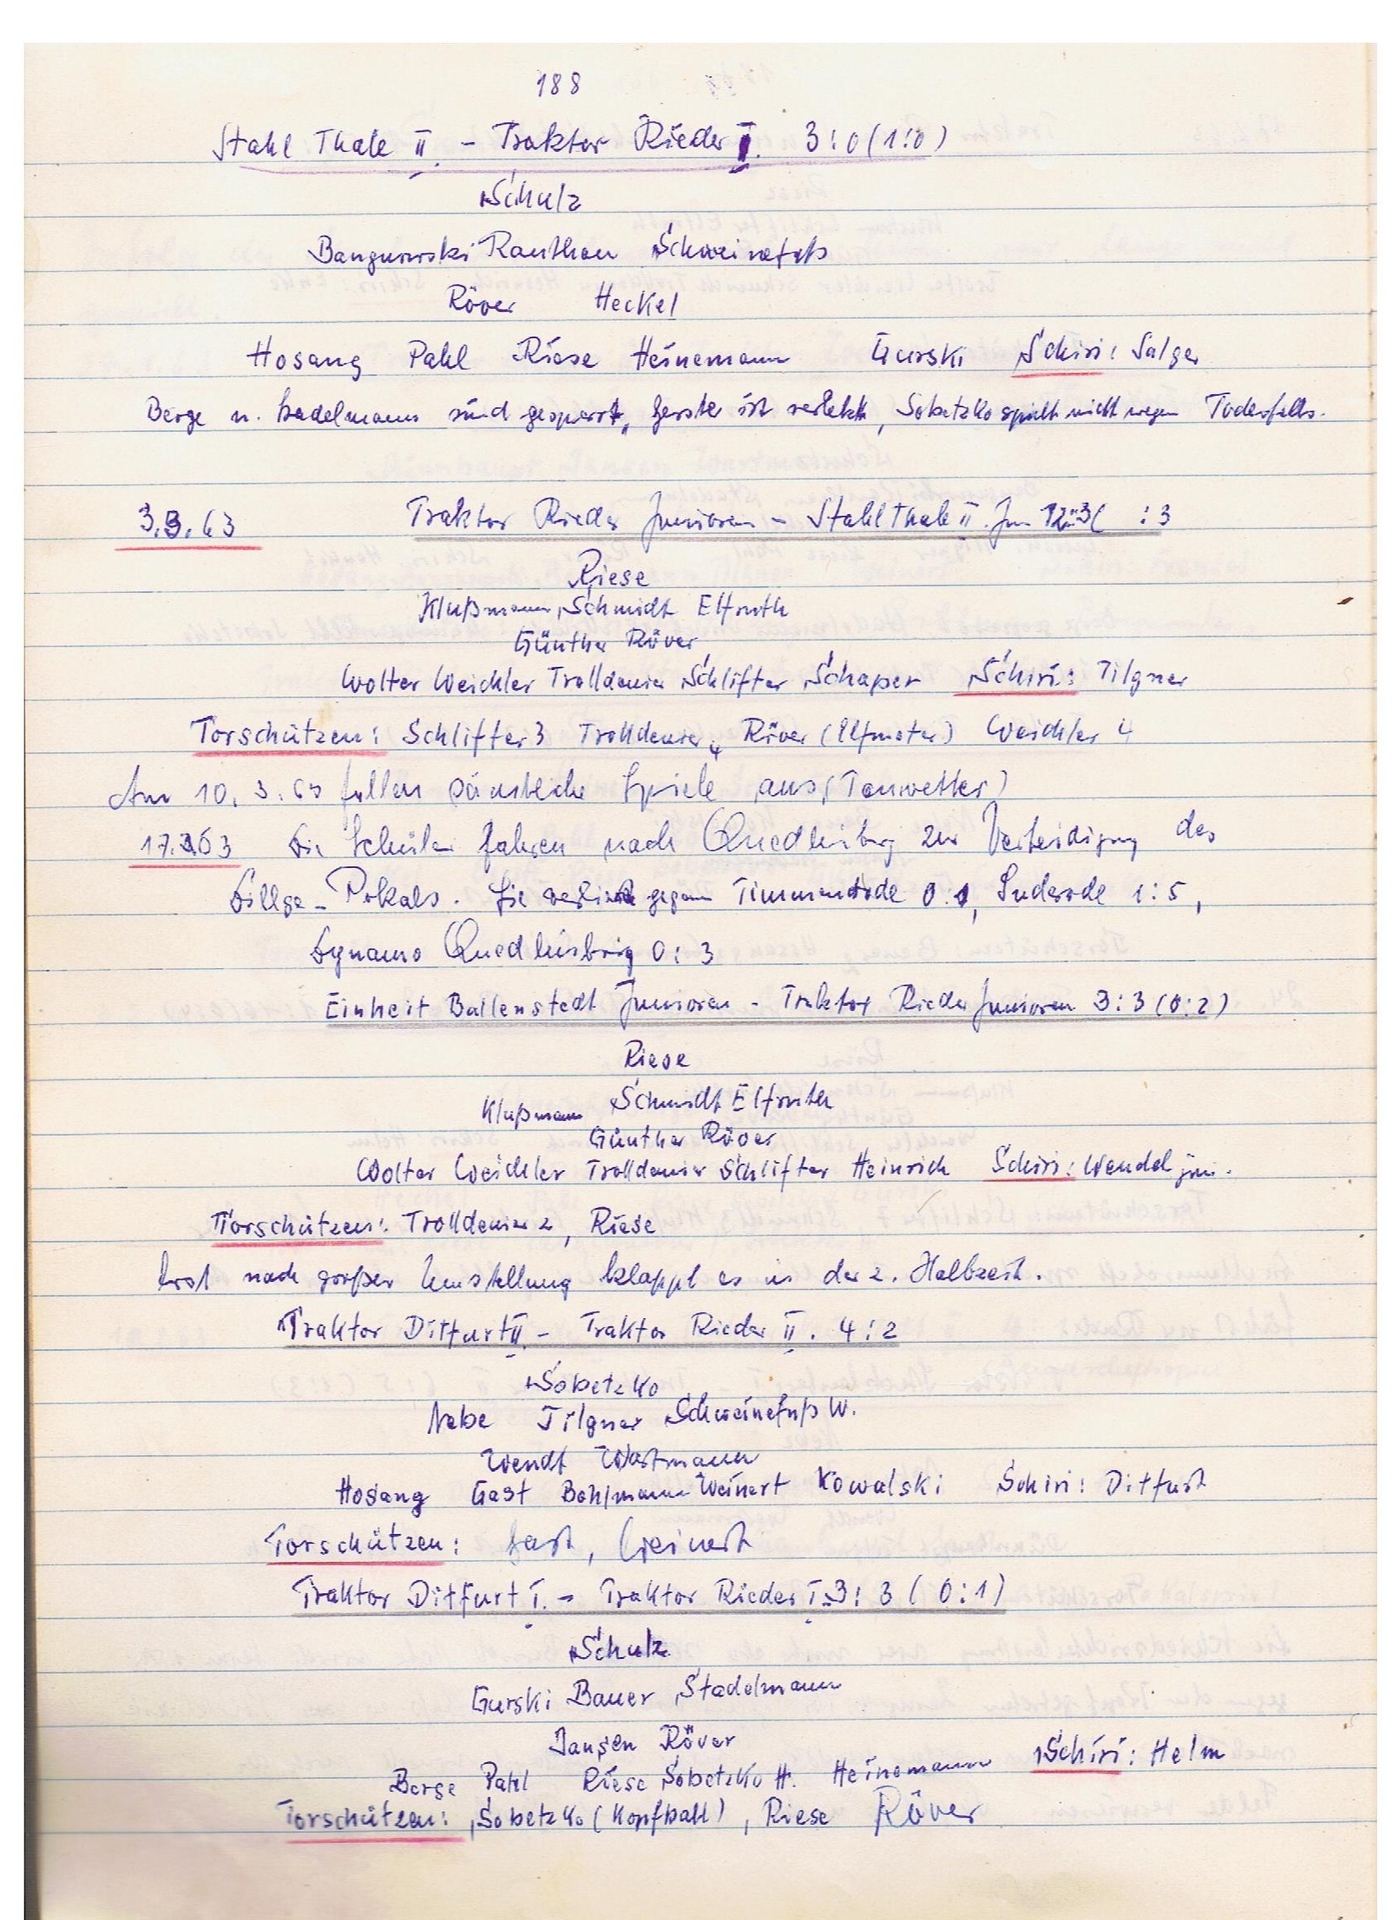 188
Stahl Thale II. - Traktor Rieder I. 3:0 (1:0)
Schulz
Bangurski Ranthon Schweinefuß
Röver Heckel
Hosang Pahl Riese Heinemann Gurski Schiri: Salger
Berge u. Stadelmann sind gesperrt, Gerste ist verletzt, Sobetzko spielt nicht wegen Todesfalls.
3.3.63 Traktor Rieder Junioren - Stahl Thale II. Jun 12:3 ( :3
Riese
Klußmann, Schmidt Elfruth
Günther Röver
Wolter Weichler Trolldenier Schlifter Schaper Schiri: Tilgner
Torschützen: Schlifter 3 Trolldenier 4 Röver (Elfmeter) Weichler 4
Am 10.3.63 fallen sämtliche Spiele aus, (Tauwetter)
17.3.63 Die Schüler fahren nach Quedlinburg zur Verteidigung des
Dillge-Pokals. Sie verlieren gegen Timmenrode 0:1, Suderode 1:5,
Dynamo Quedlinburg 0:3
Einheit Ballenstedt Junioren - Traktor Rieder Junioren 3:3 (0:2)
Riese
Klußmann Schmidt Elfruth
Günther Röver
Wolter Weichler Trolldenier Schlifter Heinrich Schiri: Wendel jun.
Torschützen: Trolldenier 2, Riese
Erst nach großer Umstellung klappt es in der 2. Halbzeit.
Traktor Ditfurt II. - Traktor Rieder II. 4:2
Sobetzko
Nebe Tilgner Schweinefuß W.
Wendt Wortmann
Hosang Gast Bohlmann Weinert Kowalski Schiri: Ditfurt
Torschützen: Gast, Weinert
Traktor Ditfurt I. - Traktor Rieder I. 3:3 (0:1)
Schulz
Gurski Bauer Stadelmann
Jansen Röver
Berge Pahl Riese Sobetzko H. Heinemann Schiri: Helm
Torschützen: Sobetzko (Kopfball), Riese Röver